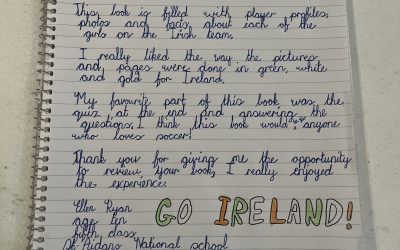 This book is filled with player profiles,
photos and facts about each of the
girls on the Irish team.
I really liked the way the pictures
and pages were done in green, white
and gold for Ireland.
My favourite part of this book was the
quiz at the end and answering the
questions. I think this book would anyone
who loves soccer!
Thank you for giving me the opportunity
to review your book, I really enjoyed
the experience.
Ellen Ryan
age ten
fifth class,
St Aidans National school
GO IRELAND!